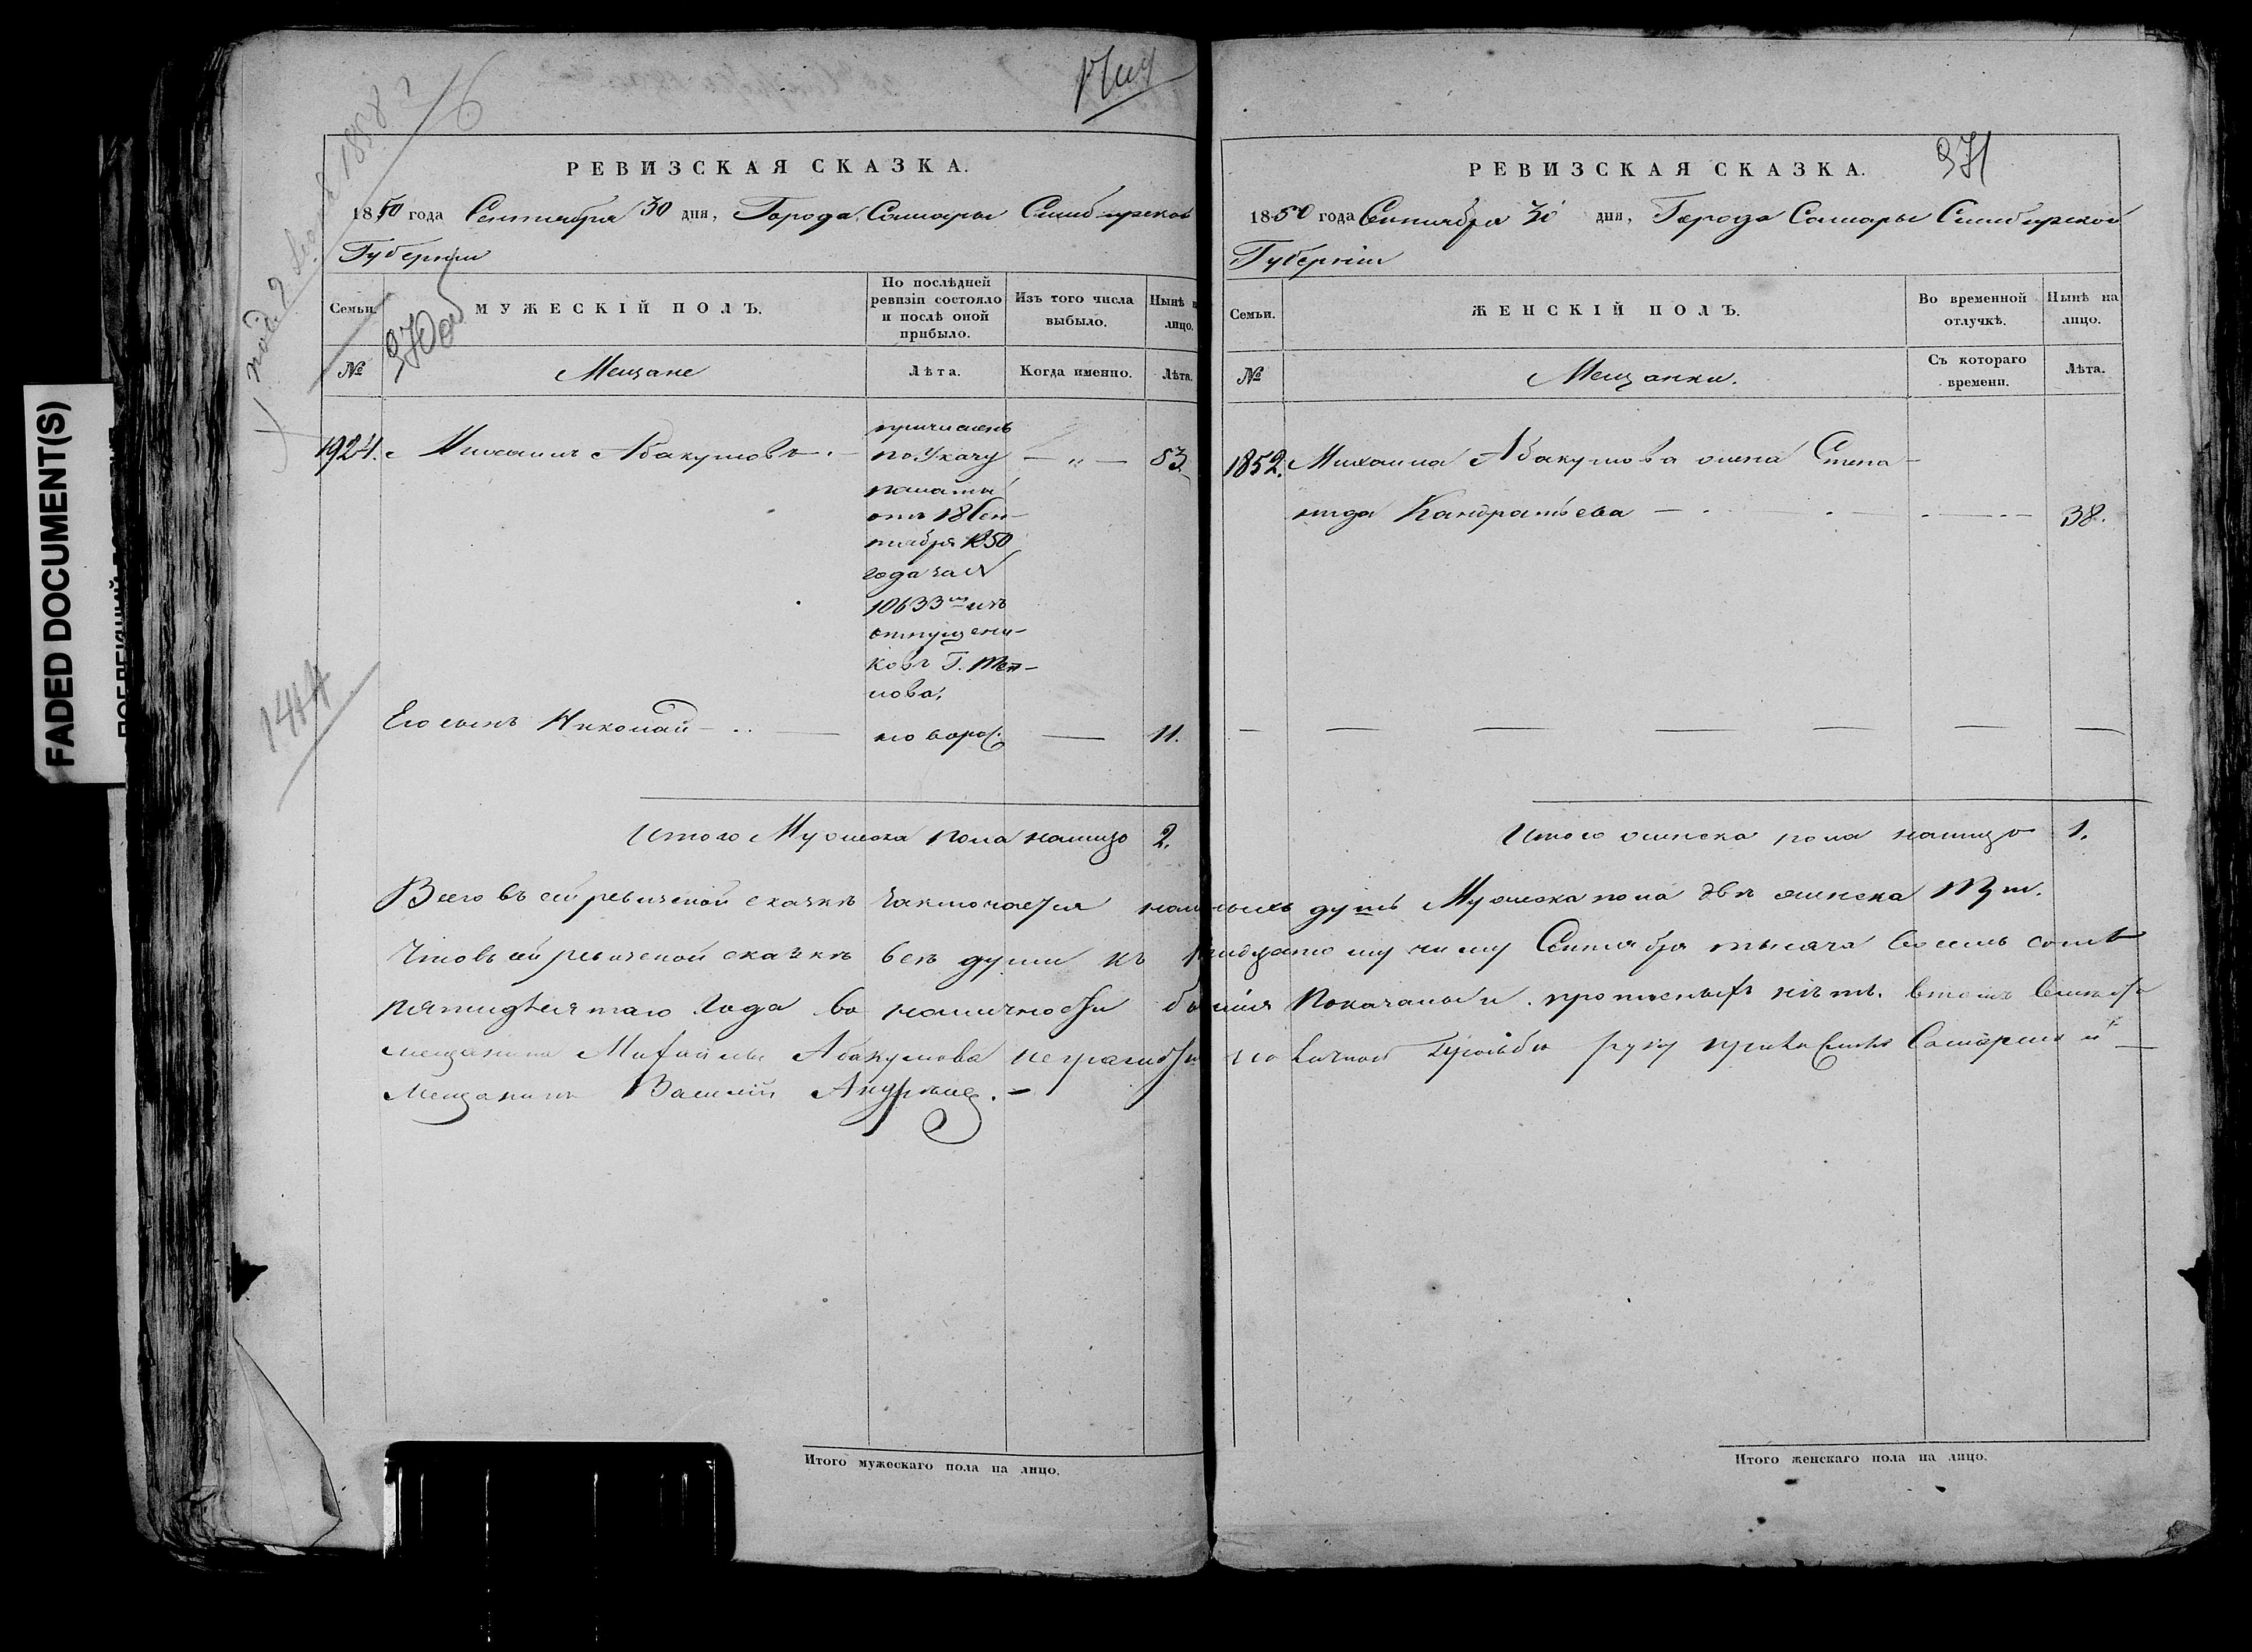 FADED DOCUMENT(S)
РЕВИЗСКАЯ СКАЗКА.
1850 года Сентября 30 дня, Города Самары Симбирской
Губерніи
370 об
Семьи.
МУЖЕСКІЙ ПОЛЪ.
По послѣдней ревизіи состояло и послѣ оной прибыло.
Изъ того числа выбыло.
Нынѣ лицо.
№
Мещане
Лѣта.
Когда именно.
Лѣта.
1924.
Михаилъ Абакумовъ.
причисленъ
по Указу
палаты
отъ 18 Сен-
тября 1850
года за №
10633 изъ
отпущени-
ковъ Г.
53
Его сынъ Николай
его возрос.
11.
144
Итого Мужеска пола налицо 2.
РЕВИЗСКАЯ СКАЗКА.
371
1850 года Сентября 30 дня, Города Самары Симбирской
Губерніи
Семьи.
ЖЕНСКІЙ ПОЛЪ.
Во временной отлучкѣ.
Нынѣ на лицо.
№
Мещанки.
Съ котораго времени.
Лѣта.
1852.
Михаила Абакумова жена Степа-
нида Кандратьева
38.
Итого женска пола налицо 1.
Всего въ сей ревизской сказкѣ заключается наличныхъ душъ Мужеска пола двѣ женска
Что въ сей ревизской сказкѣ всѣ души къ тридцатому числу Сентября тысяча восемь сотъ
пятидесятаго года въ наличности бывшія показаны и прописныхъ нѣтъ. втомъ вместо
мещанина Михайлы Абакумова неграмотн его личной прозьбы руку приложилъ Самарской
Мещанинъ Василий
Итого мужескаго пола на лицо.
Итого женскаго пола на лицо.